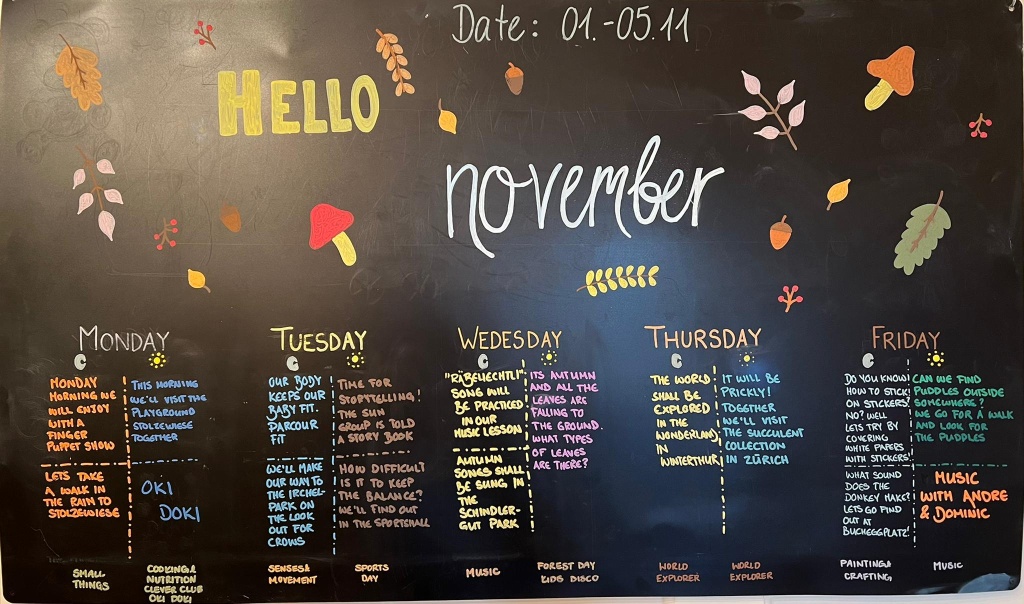 Date: 01.-05.11
HELLO
november
MONDAY
MONDAY
MORNING WE
WILL ENJOY
WITH A
FINGER
PUPPET SHOW
LETS TAKE
A WALK IN
THE RAIN TO
STOLZEWIESE
THIS MORNING
WE'LL VISIT THE
PLAYGROUND
STOLZEWIESE
TOGETHER
OKI
DOKI
SMALL
THINGS
COOKING &
NUTRITION
CLEVER CLUB
OKI DOKI
TUESDAY
OUR BODY
KEEPS OUR
BABY FIT.
PARCOUR
FIT
WE'LL MAKE
OUR WAY TO
THE IRCHEL-
PARK ON
THE LOOK
OUT FOR
CROWS
TIME FOR
STORYTELLING!
THE SUN
GROUP IS TOLD
A STORY BOOK
HOW DIFFICULT
IS IT TO KEEP
THE BALANCE?
WE'LL FIND OUT
IN THE SPORTEHALL
SENSES &
MOVEMENT
SPORTS
DAY
WEDESDAY
"RÄBELIECHTLI"
SONG WILL
BE PRACTICED
IN OUR
MUSIC LESSON
AUTUMN
SONGS SHALL
BE SUNG IN
THE
SCHINDLER-
GUT PARK
ITS AUTUMN
AND ALL THE
LEAVES ARE
FALLING TO
THE GROUND.
WHAT TYPES
OF LEAVES
ARE THERE?
MUSIC
FOREST DAY
KIDS DISCO
THURSDAY
THE WORLD
SHALL BE
EXPLORED
IN THE
WONDERLAND
IN
WINTERTHUR
IT WILL BE
PRICKLY!
TOGETHER
WE'LL VISIT
THE SUCCULENT
COLLECTION
IN ZÜRICH
WORLD
EXPLORER
WORLD
EXPLORER
FRIDAY
DO YOU KNOW
HOW TO STICK
ON STICKERS?
NO? WELL
LETS TRY BY
COVERING
WHITE PAPERS
WITH STICKERS!
WHAT SOUND
DOES THE
DONKEY MAKE?
LETS GO FIND
OUT AT
BUCHEGGPLATZ!
CAN WE FIND
PUDDLES OUTSIDE
SOMEWHERE?
WE GO FOR A WALK
AND LOOK FOR
THE PUDDLES
MUSIC
WITH ANDRE
& DOMINIC
PAINTING &
CRAFTING
MUSIC